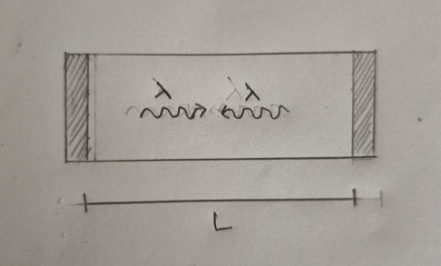 λ λ
L